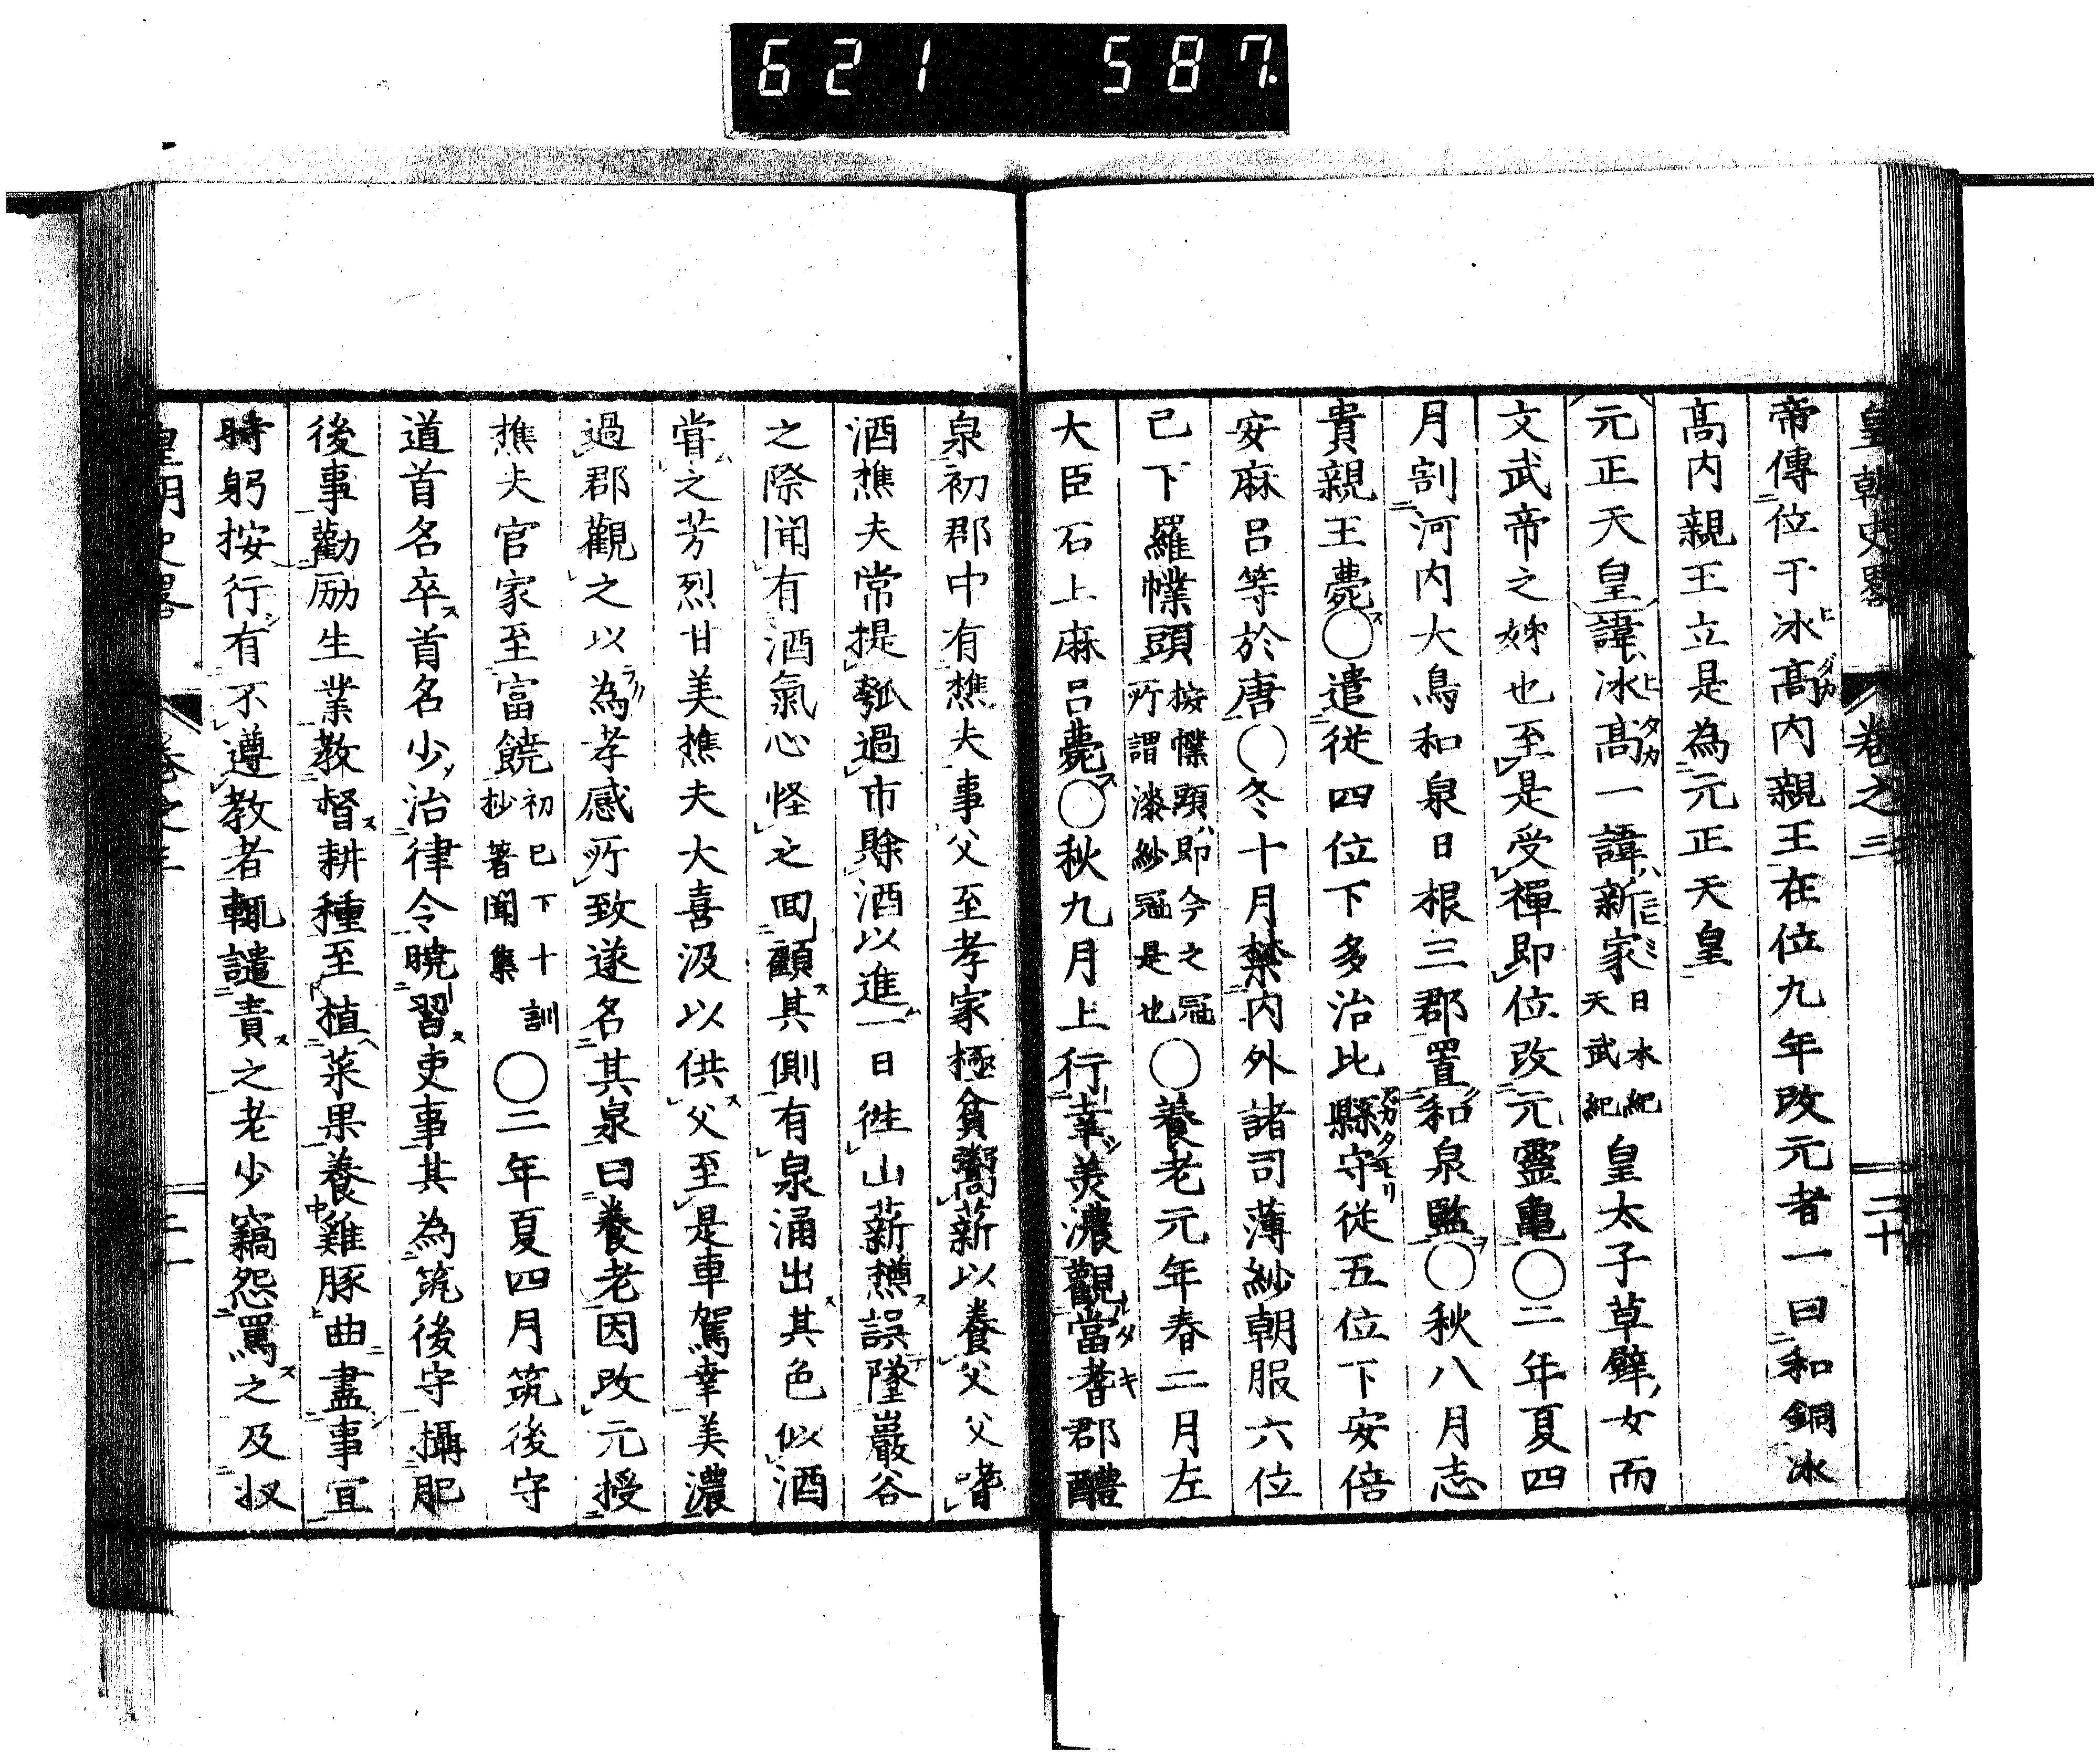 621 587
皇朝史畧 卷之三 二十
帝傳位于冰高内親王在位九年改元者一曰和銅冰
高内親王立是為元正天皇
元正天皇諱冰高一諱新家日本紀天武紀皇太子草壁女而
文武帝之姊也至是受禪即位改元靈亀〇二年夏四
月割河内大鳥和泉日根三郡置和泉監〇秋八月志
貴親王薨〇遣從四位下多治比縣守從五位下安倍
安麻呂等於唐〇冬十月禁内外諸司薄紗朝服六位
已下羅幞頭按幞頭即今之冠所謂漆紗冠是也〇養老元年春二月左
大臣石上麻呂薨〇秋九月上行幸美濃觀當耆郡醴
泉初郡中有樵夫事父至孝家極貧鬻薪以養父父嗜
酒樵夫常提瓠過市賖酒以進一日徃山薪樵誤墜巖谷
之際聞有酒氣心怪之回顧其側有泉涌出其色似酒
嘗之芳烈甘美樵夫大喜汲以供父至是車駕幸美濃
過郡觀之以為孝感所致遂名其泉曰養老因改元授
樵夫官家至富饒初已下十訓抄著聞集〇二年夏四月筑後守
道首名卒首名少治律令曉習吏事其為筑後守攝肥
後事勸励生業教督耕種至植菜果養雞豚曲盡事宜
時躬按行有不遵教者輒譴責之老少竊怨罵之及収